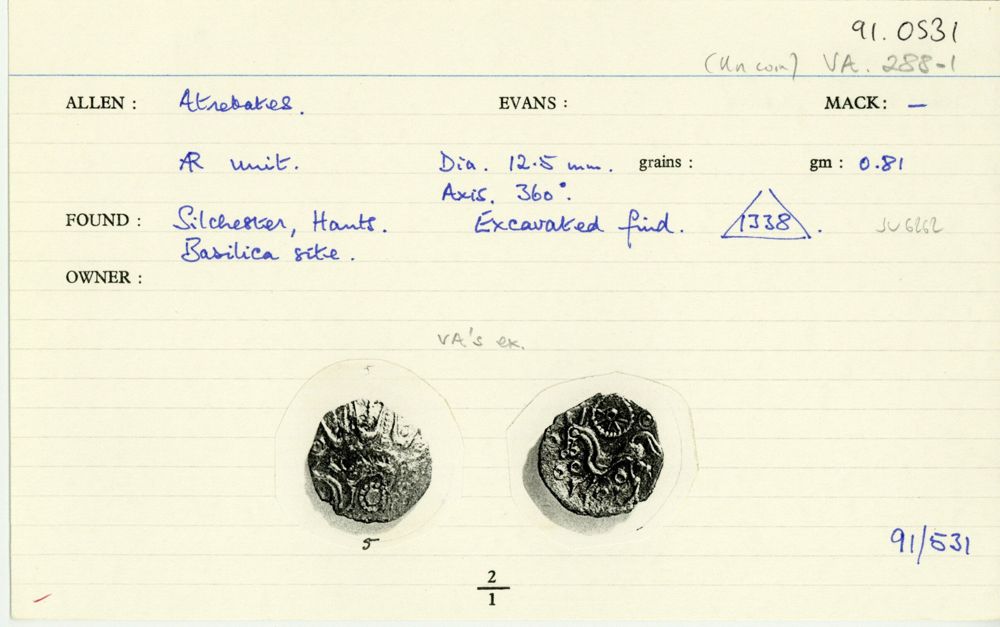 91.0531
(Uncoin) VA. 288-1
ALLEN : Atrebates. EVANS : MACK: —
AR unit. Dia. 12.5 mm. grains : gm : 0.81
Axis. 360°.
FOUND : Silchester, Hants. Excavated find. 1338. SU6262
Basilica site.
OWNER :
VA's ex.
5
91/531
2
1